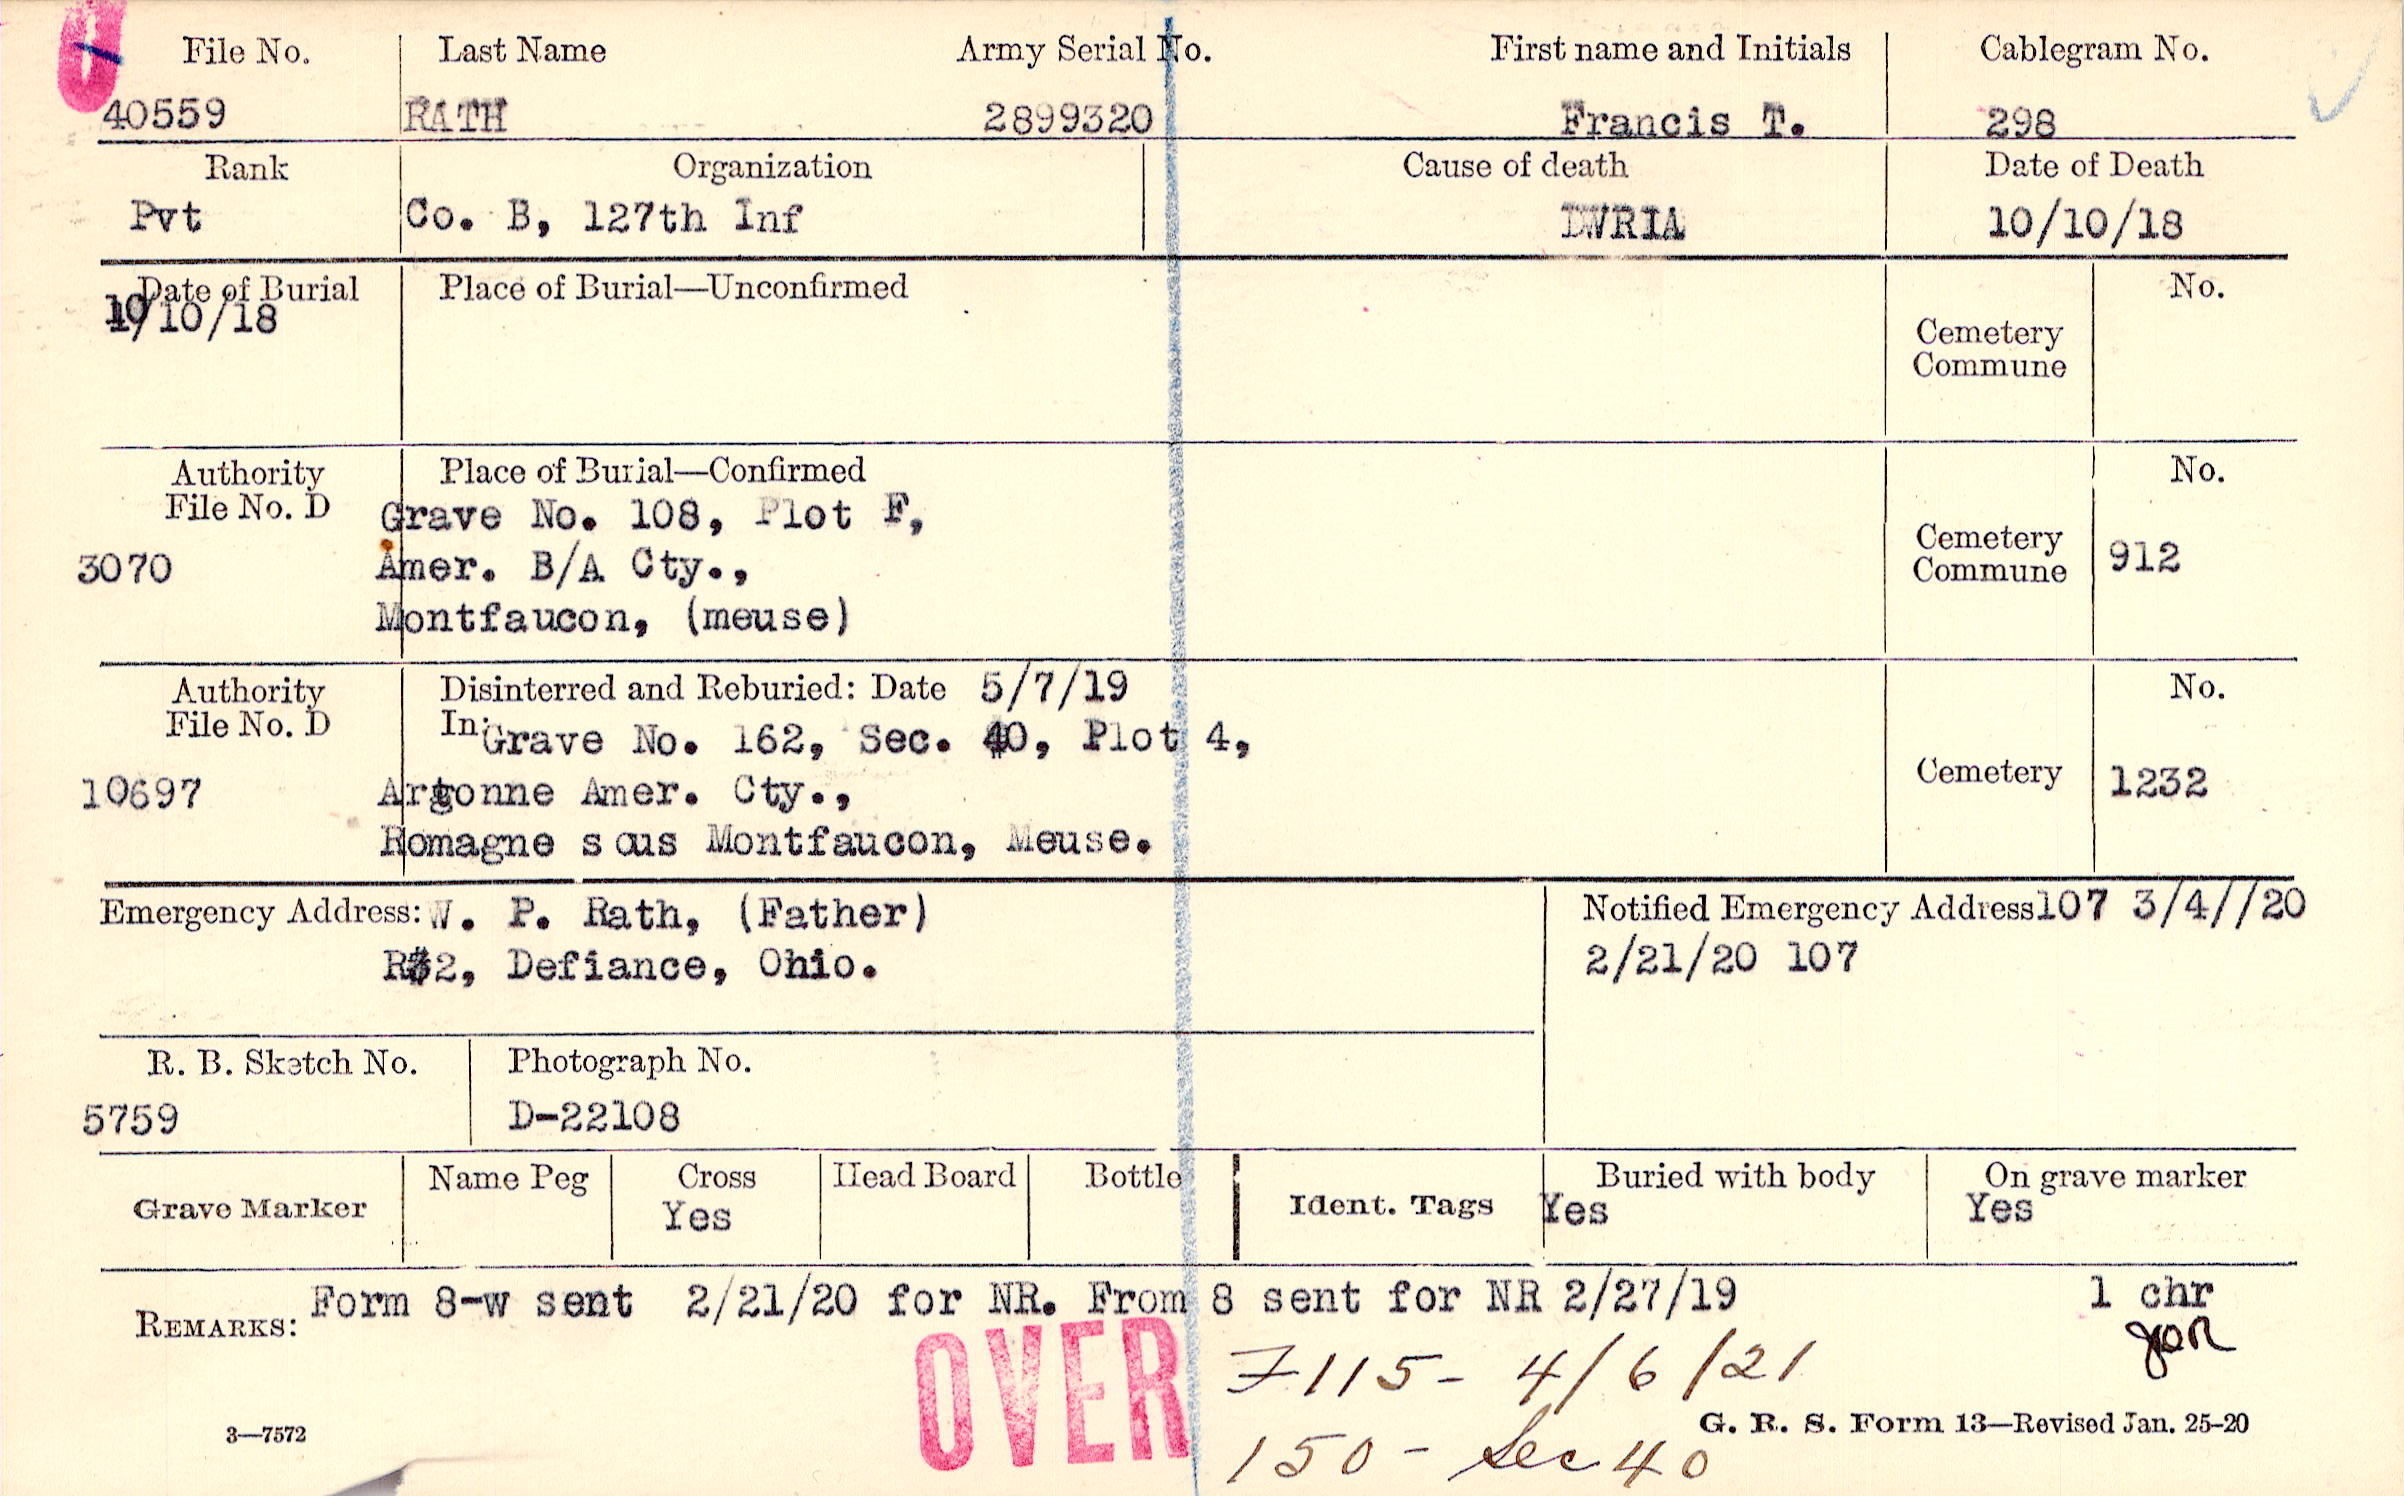 File No. Last Name Army Serial No. First name and Initials Cablegram No.
40559 RATH 2899320 Francis T. 298
Rank Organization Cause of death Date of Death
Pvt Co. B, 127th Inf DWRIA 10/10/18
Date of Burial Place of Burial—Unconfirmed No.
10/10/18
Cemetery
Commune
Authority Place of Burial—Confirmed No.
File No. D Grave No. 108, Plot F,
3070 Amer. B/A Cty., Cemetery
Commune 912
Montfaucon, (meuse)
Authority Disinterred and Reburied: Date 5/7/19 No.
File No. D In: Grave No. 162, Sec. 40, Plot 4,
10697 Argonne Amer. Cty., Cemetery 1232
Romagne sous Montfaucon, Meuse.
Emergency Address: W. P. Rath, (Father) Notified Emergency Address 107 3/4//20
R#2, Defiance, Ohio. 2/21/20 107
R. B. Sketch No. Photograph No.
5759 D-22108
Grave Marker Name Peg Cross Head Board Bottle Ident. Tags Buried with body On grave marker
Yes Yes Yes
REMARKS: Form 8-w sent 2/21/20 for NR. From 8 sent for NR 2/27/19 1 chr
OVER
F115- 4/6/21
150- Sec 40
3—7572 G. R. S. Form 13—Revised Jan. 25-20